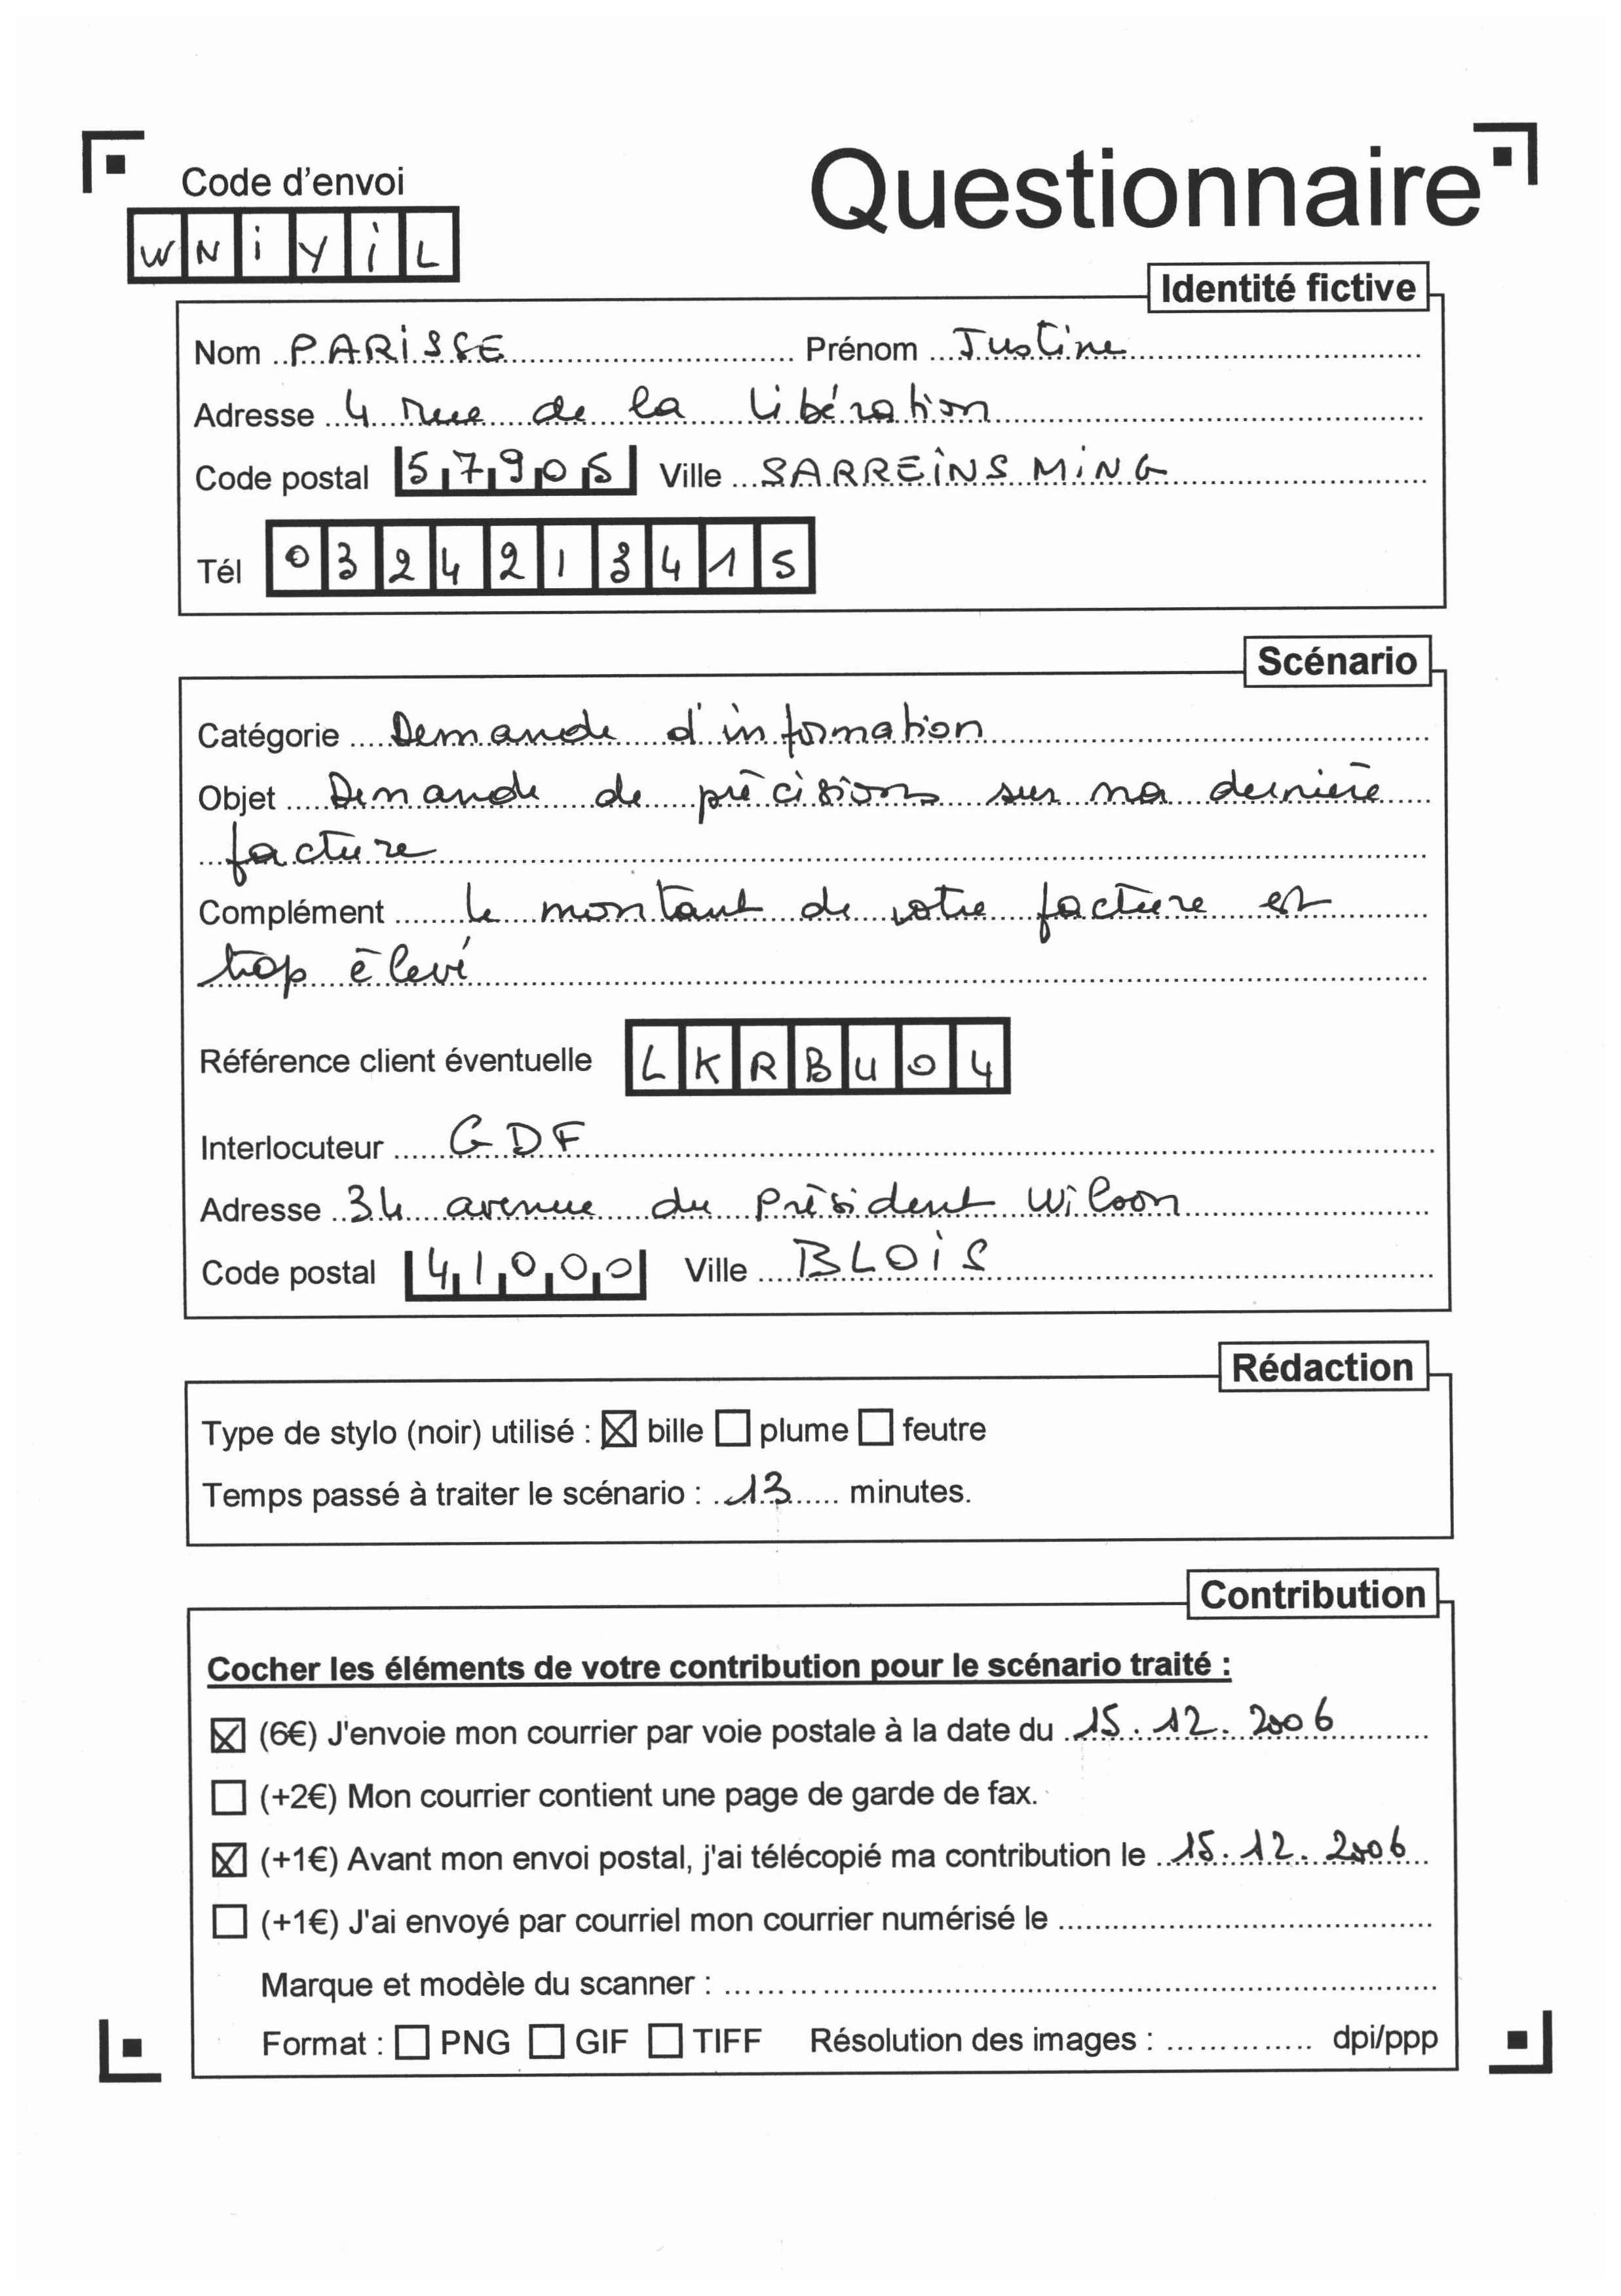 Code d'envoi
Questionnaire
WNiYiL
Identité fictive
Nom PARiSSE Prénom Justine
Adresse 4 rue de la libération
Code postal 57905 Ville SARREiNSMiNG
Tél 0324213415
Scénario
Catégorie Demande d'information
Objet Demande de précisions sur ma dernière
facture
Complément le montant de votre facture est
trop élevé
Référence client éventuelle LKRBU04
Interlocuteur GDF
Adresse 34 avenue du Président Wilson
Code postal 41000 Ville BLOiS
Rédaction
Type de stylo (noir) utilisé : ☒ bille ☐ plume ☐ feutre
Temps passé à traiter le scénario : 13 minutes.
Contribution
Cocher les éléments de votre contribution pour le scénario traité :
☒ (6€) J'envoie mon courrier par voie postale à la date du 15.12.2006
☐ (+2€) Mon courrier contient une page de garde de fax.
☒ (+1€) Avant mon envoi postal, j'ai télécopié ma contribution le 15.12.2006
☐ (+1€) J'ai envoyé par courriel mon courrier numérisé le
Marque et modèle du scanner :
Format : ☐ PNG ☐ GIF ☐ TIFF Résolution des images : dpi/ppp